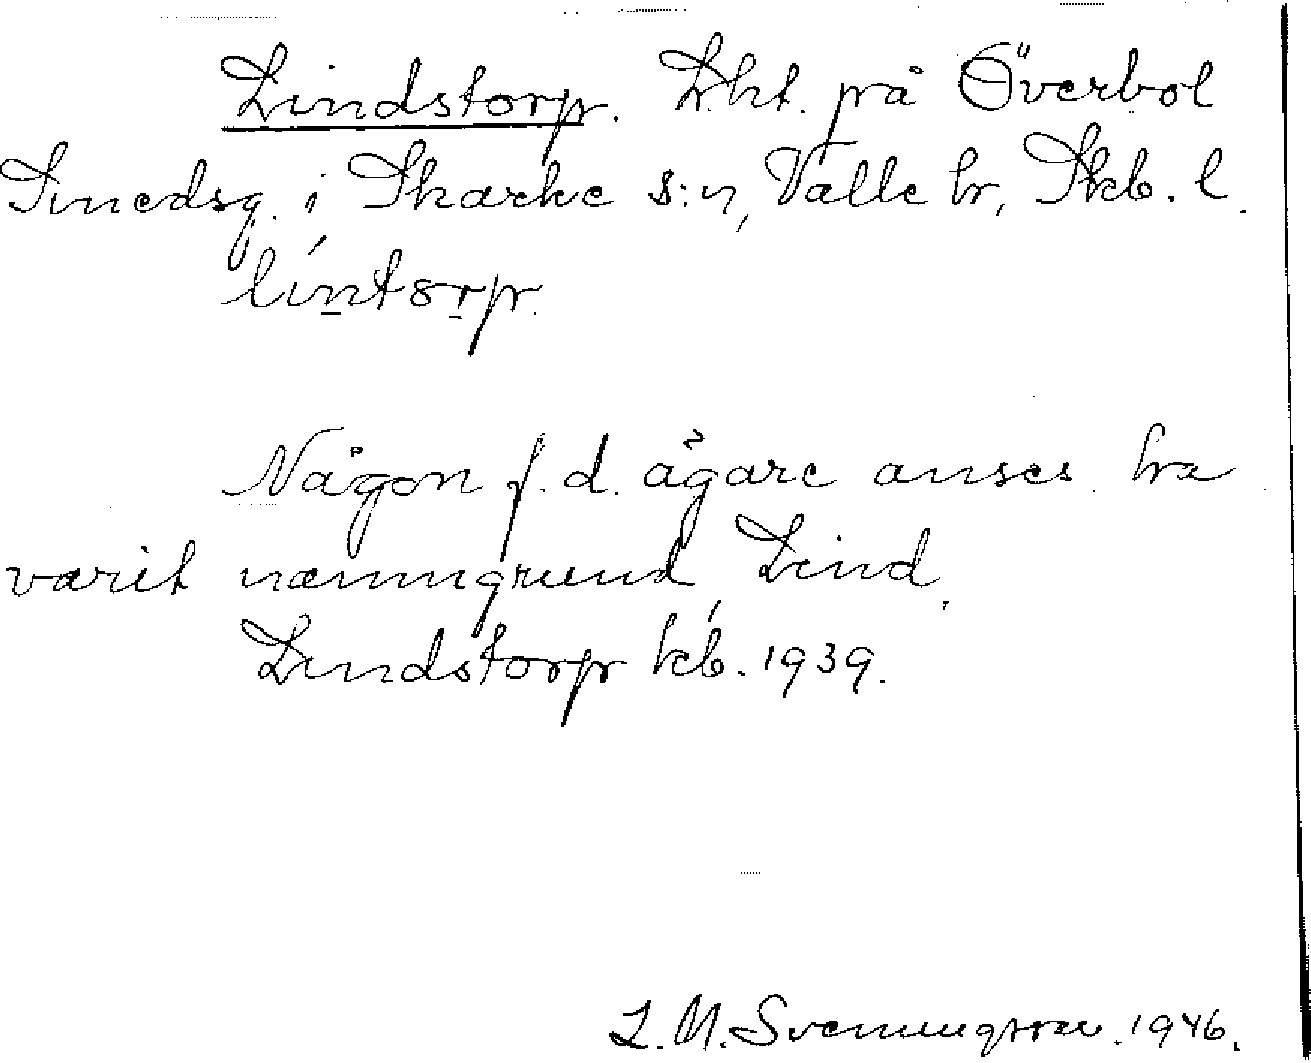 Lindstorp. Lht. på Överbol
Smedsg. i Skärke s:n, Valle hr, Skb. l.
líntsrp.
Någon f.d. ägare anses ha
varit namngrund, Lind.
Lindstorp kb. 1939.
L. M. Svenungsson. 1946.